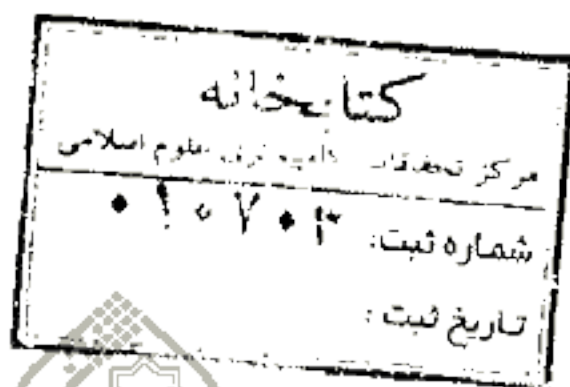 کتابخانه
مرکز تحقیقات کامپیوتری علوم اسلامی
شماره ثبت: ۰۱۰۷۰۳
تاریخ ثبت: